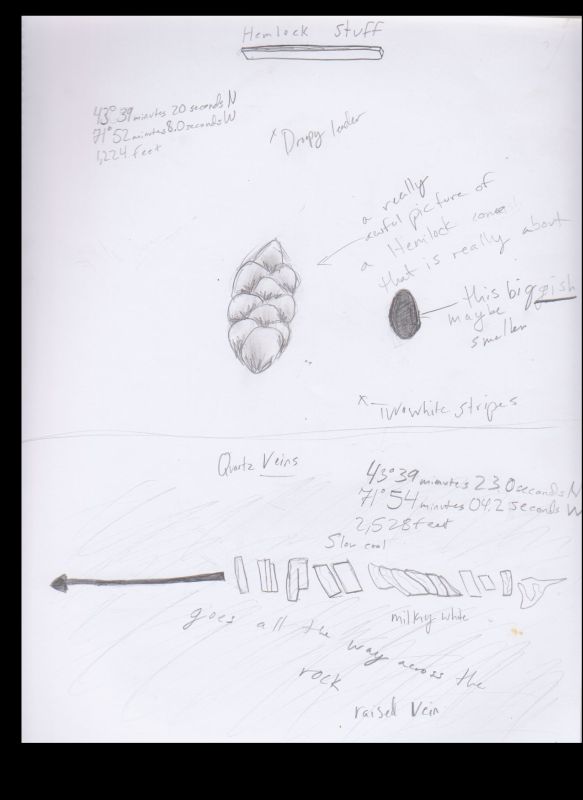 Hemlock Stuff
43° 39 minutes 20 seconds N
71° 52 minutes 8.0 seconds W
1,224 feet
x Droopy leader
a really
awful picture of
a Hemlock cone
that is really about
this biggish
maybe
smaller
x Two white stripes
Quartz Veins
43° 39 minutes 23.0 seconds N
71° 54 minutes 04.2 seconds W
2,528 feet
Slow cool
milky white
goes all the way across the
rock
raised Vein